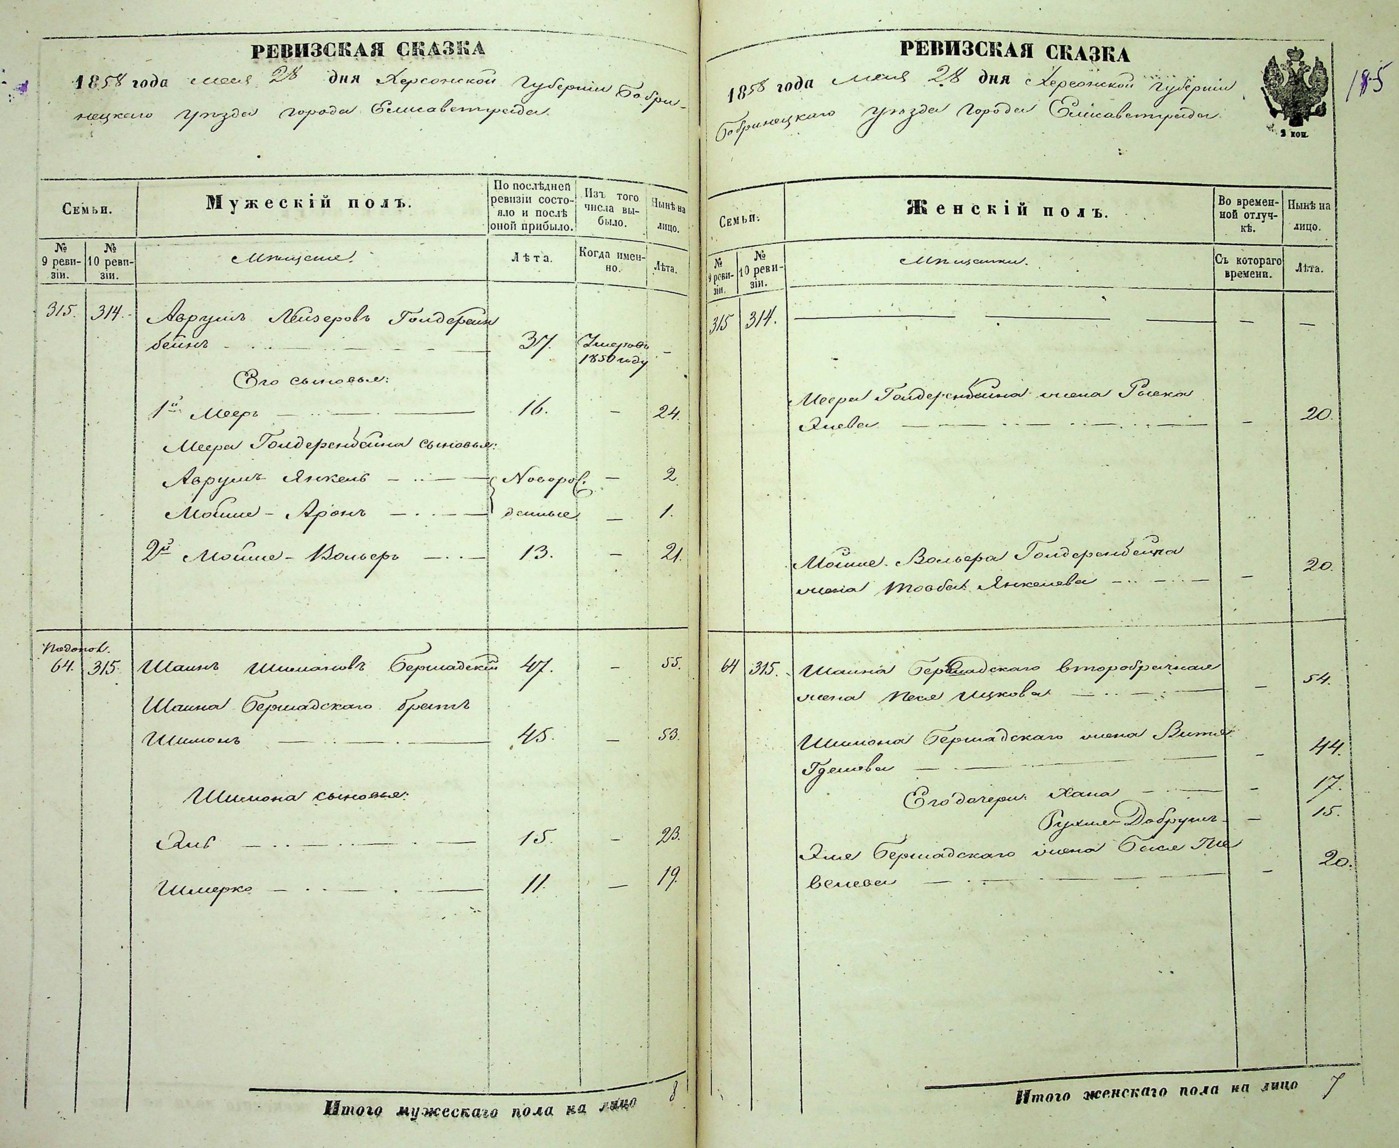 РЕВИЗСКАЯ СКАЗКА
1858 года мая 28 дня Херсонской Губерніи Бобри-
нецкаго уѣзда города Елисаветграда.
Семьи.
Мужескій полъ.
По послѣдней ревизіи состояло и послѣ оной прибыло.
Изъ того числа выбыло.
Нынѣ на лицо.
№ 9 ревизіи.
№ 10 ревизіи.
Мѣщане.
Лѣта.
Когда именно.
Лѣта.
315. 314. Аврумъ Лейзеровъ Голдерен
бейнъ 37. Умеръ въ 1850 году –
Его сыновья:
1й Мееръ 16. – 24.
Меера Голдеренбейна сыновья:
Аврумъ Янкель Новорож – 2.
Мойше-Аронъ денные – 1.
2й Мойше-Вольеръ 13. – 21.
64. 315. Шаинъ Шимановъ Бершадскій 47. – 55.
Шаина Бершадскаго братъ
Шимонъ 45. – 53.
Шимона сыновья:
Эль 15. – 23.
Шмерко 11. – 19.
Итого мужескаго пола на лицо 8
РЕВИЗСКАЯ СКАЗКА
1858 года мая 28 дня Херсонской Губерніи
Бобринецкаго уѣзда города Елисаветграда.
2 коп.
185
Семьи.
Женскій полъ.
Во временной отлучкѣ.
Нынѣ на лицо.
№ 9 ревизіи.
№ 10 ревизіи.
Мѣщанки.
Съ котораго времени.
Лѣта.
315 314. – –
Меера Голдеренбейна жена Рывка
Элева – 20.
Мойше Вольера Голдеренбейна
жена Товба Янкелева – 20.
64 315. Шаина Бершадскаго второбрачная
жена Песя Ицкова – 54.
Шимона Бершадскаго жена Витя
Гдешева – 44.
Его дочери: Хана – 17.
Рухля-Добрушъ – 15.
Эле Бершадскаго жена Бася Пе
велева – 20.
Итого женскаго пола на лицо 7